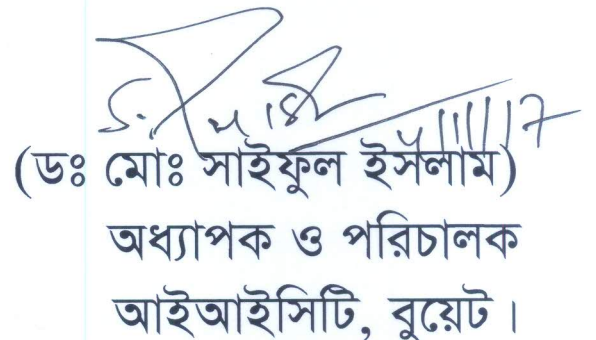 (ডঃ মোঃ সাইফুল ইসলাম)
অধ্যাপক ও পরিচালক
আইআইসিটি, বুয়েট।